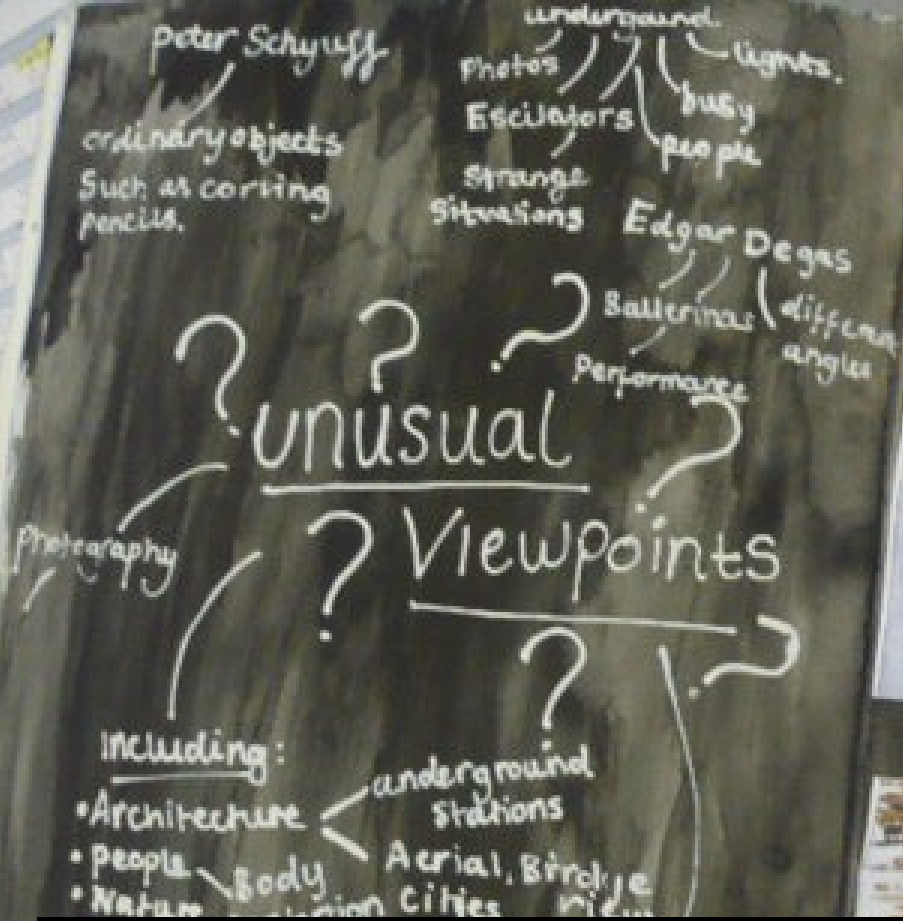 Peter Schyuff
ordinary objects
Such as corsing
pencils.
underground.
Photos
lights.
Escilators
busy
people
Strange
Situations
Edgar Degas
Ballerinas
different
angles
Performance
? ? ?
unusual
?
Viewpoints
Photography
?
? ?
Including:
• Architecture
underground
Stations
Aerial, Birdeye
view
• People
Body
• Nature
Cities